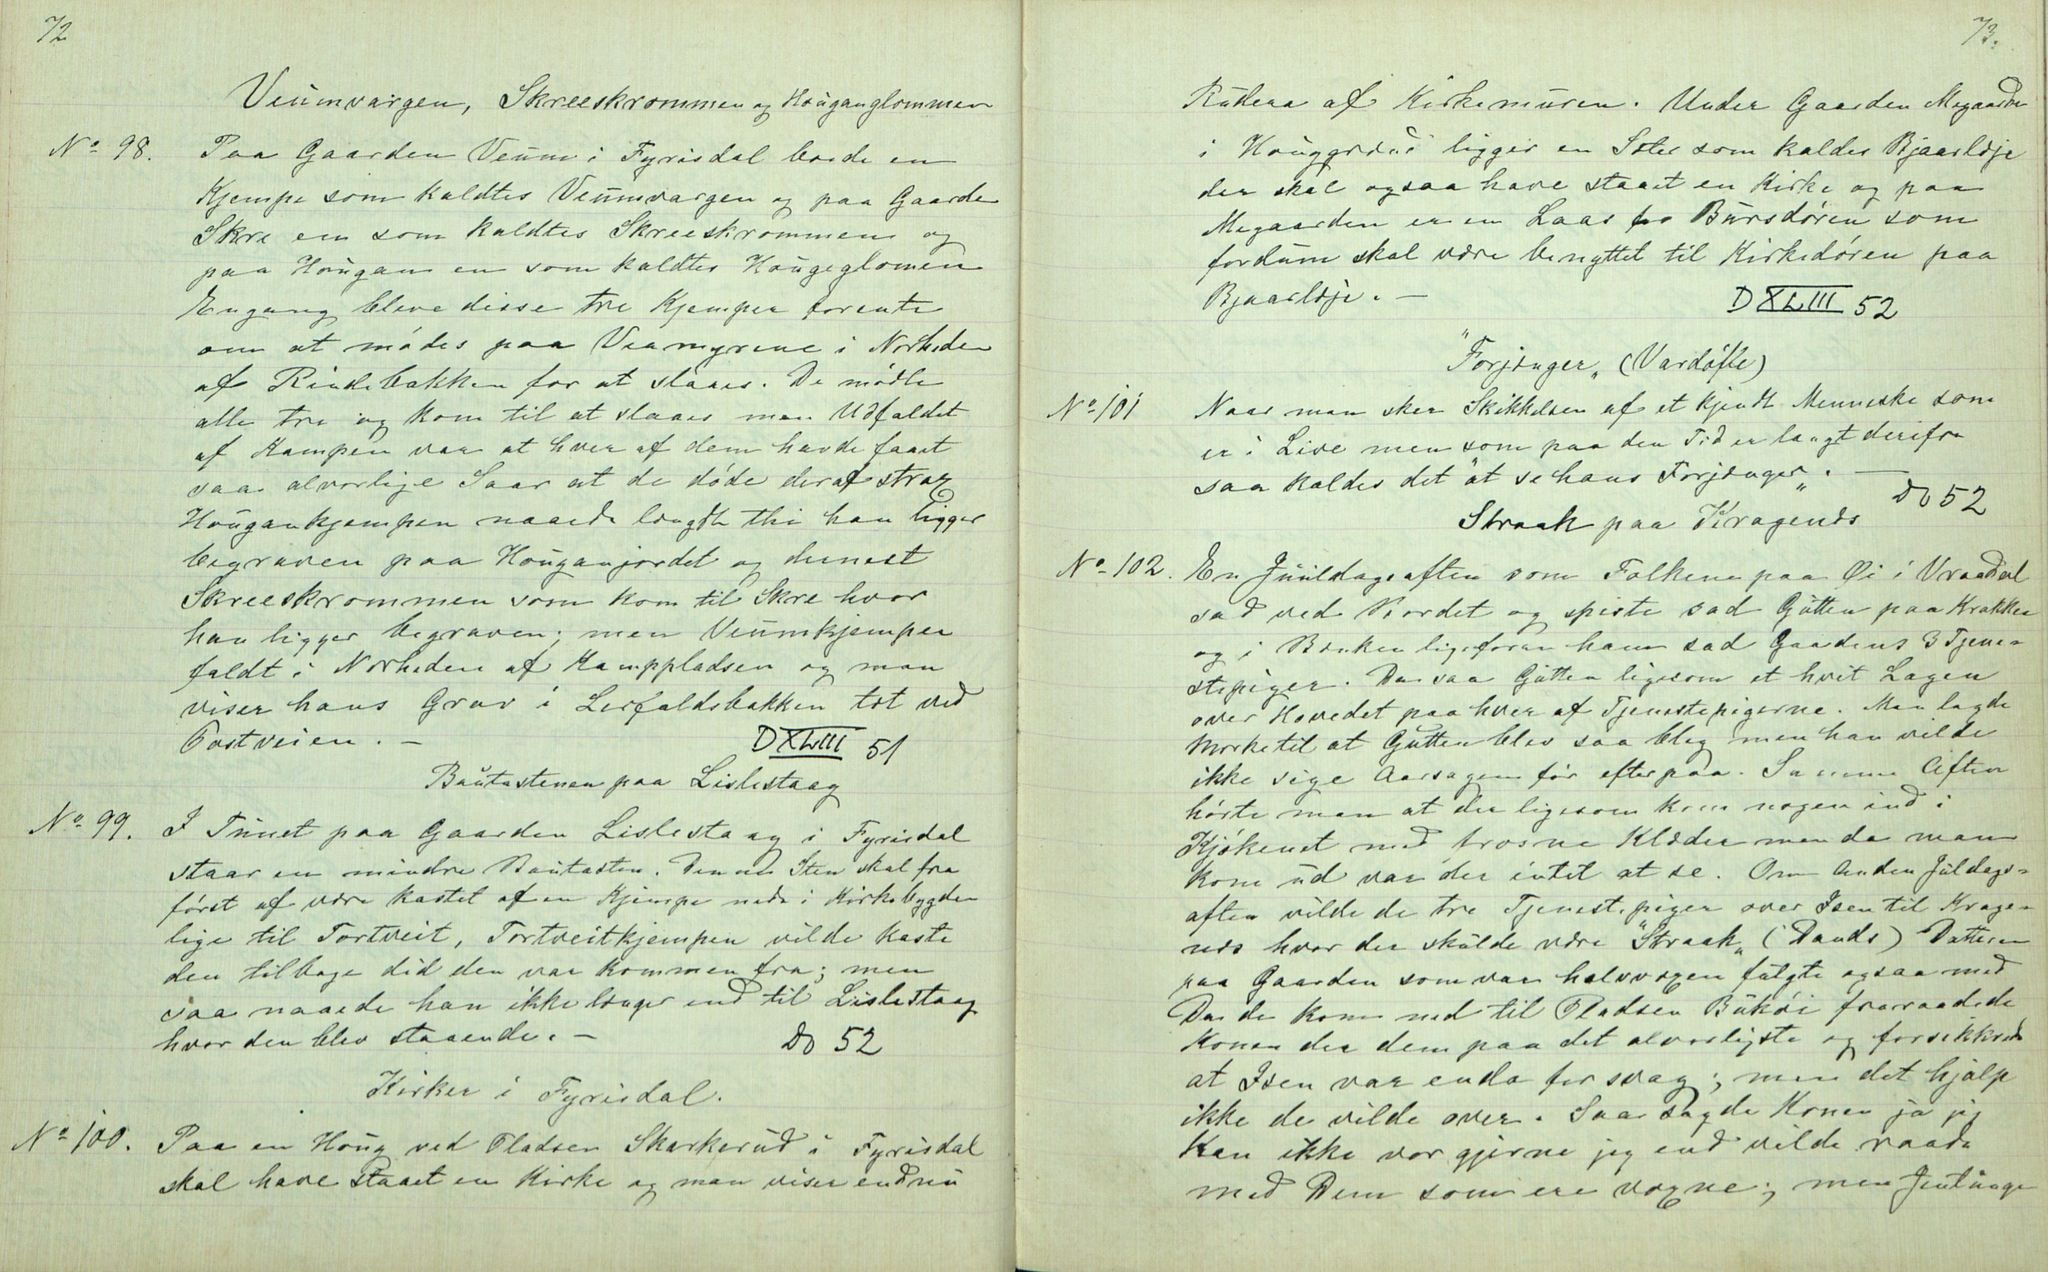 72
Veumvargen, Skreeskrommen og Houganglommen
No 98. Paa Gaarden Veum i Fyrisdal boede en
Kjempe som kaldtes Veumvargen og paa Gaarden
Skre en som kaldtes Skreeskrommen og
paa Hougan en som kaldtes Hougeglomen
Engang bleve disse tre Kjemper forente
om at mødes paa Veamyrene i Norheden
af Rindebakken for at slaaes. De mødte
alle tre og kom til at slaaes men Udfaldet
af Kampen var at hver af dem havde faaet
saa alvorlige Saar at de døde deraf strax
Hougankjempen naaede længst thi han ligger
begraven paa Houganjordet og dernest
Skreeskrommen som kom til Skre hvor
han ligger begraven; men Veumkjempen
faldt i Norheden af Kamppladsen og man
viser hans Grav i Lerfaldsbakken tæt ved
Postveien. —
D XLIII 51
Bautastenen paa Lislestaag
No 99. I Tunet paa Gaarden Lislestaag i Fyrisdal
staar en mindre Bautasten. Denne Sten skal fra
først af være kastet af en Kjempe nede i Kirkebygden
lige til Tortveit, Tortveitkjempen vilde kaste
den tilbage did den var kommen fra; men
saa naaede han ikke længer end til Lislestaag
hvor den blev staaende. —
Do 52
Kirker i Fyrisdal.
No 100. Paa en Houg ved Pladsen Skarkerud i Fyrisdal
skal have staaet en Kirke og man viser endnu
73.
Rudera af Kirkemuren. Under Gaarden Mogaarden
i ligger en Sæter som kaldes Bjaarløje
der skal ogsaa have staaet en Kirke og paa
Mogaarden er en Laas fo Bursdøren som
fordum skal være benyttet til Kirkedøren paa
Bjaarløje. —
D XLIII 52
"Forjænger„ (Vardøfle)
No 101 Naar man sker Skikkelsen af et kjendt Menneske som
er i Live men som paa den Tid er langt derifra
saa kaldes det "at se hans Forjænger„. —
Do 52
Straak paa Kragenes
No 102. En Juuldagsaften som Folkene paa Øi i Vraadal
sad ved Bordet og spiste sad Gutten paa Krakken
og i Bænken ligeforan ham sad Gaardens 3 Tjene-
stepiger. Da saa Gutten ligesom et hvit Lagen
over Hovedet paa hver af Tjenestepigerne. Man lagde
Mærke til at Gutten blev saa bleg men han vilde
ikke sige Aarsagen før efterpaa. Samme Aften
hørte man at der ligesom kom nogen ind i
Kjøkenet med frosne Klæder men da man
kom ud var der intet at se. Om Anden Juldags-
aften vilde de tre Tjenestepiger over Isen til Krage-
næs hvor der skulde være "Straak„ (Dands) Datteren
paa Gaarden som var halvvoxen fulgte ogsaa med
Da de kom ned til Pladsen Bukøi fraraadede
Konen der dem paa det alvorligste og forsikkrede
at Isen var enda for svag; men det hjalp
ikke de vilde over. Saa sagde Konen ja jeg
kan ikke vor gjerne jeg end vilde raade
med Dem som ere voxne; men Jentunge